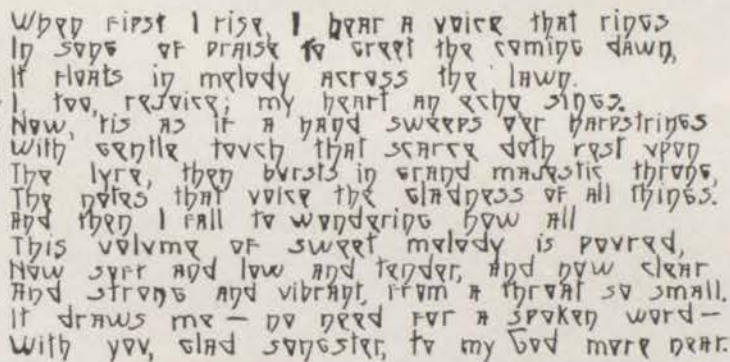 When first I rise, I hear a voice that rings
In song of praise to greet the coming dawn,
It floats in melody across the lawn.
I, too, rejoice; my heart an echo sings.
Now, tis as if a hand sweeps oer harpstrings
With gentle touch that scarce doth rest upon
The lyre, then bursts in grand majestic throng,
The notes that voice the gladness of all things.
And then I fall to wondering how all
This volume of sweet melody is poured,
Now soft and low and tender, and now clear
And strong and vibrant, from a throat so small.
It draws me — no need for a spoken word —
With you, glad songster, to my God more near.